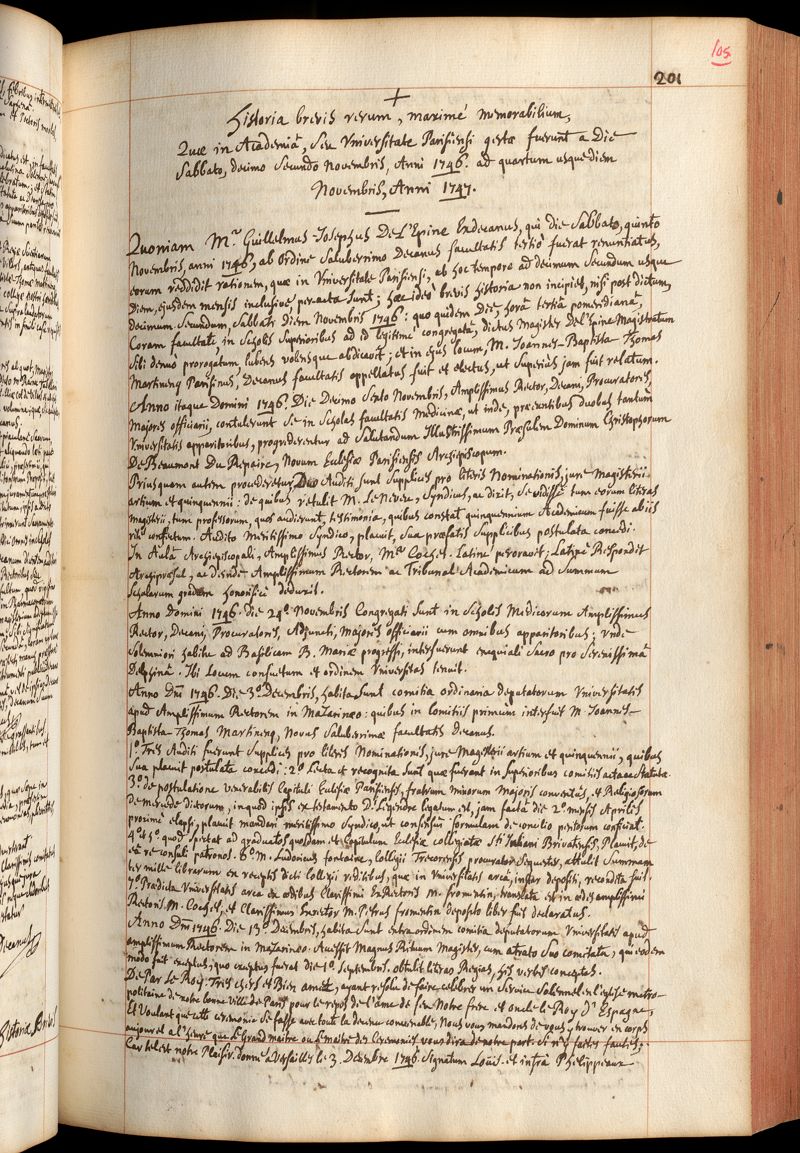 105
201
+
Historia brevis rerum, maximé memorabilium,
Quæ in Academiâ, seu Universitate Parisiensi gestæ fuerunt a Die
Sabbato, decimo secundo Novembris, Anni 1746. ad quartum usque diem
Novembris, Anni 1747.
Quoniam Mr. Guillelmus-Josephus De L'Epine Exdecanus, qui die Sabbato, quinto
Novembris, anni 1746, ab Ordine Saluberrimo Decanus facultatis tertiò fuerat renuntiatus,
eorum reddidit rationem, quæ in Universitate Parisiensi, ab hoc tempore ad decimum secundum usque
diem, ejusdem mensis inclusive, peracta sunt; hæc ideo brevis historia non incipiet, nisi post dictum,
decimum secundum, Sabbati diem Novembris 1746: quo quidem die, horâ tertiâ pomeridianâ,
Coram facultate, in Scholis Superioribus ad id legitimè congregatâ, dictus Magister De L'Epine Magistratum
sibi denuò prorogatum, lubens volensque abdicavit; et in ejus locum, M. Joannes-Baptista Thomas
Martinenq Parisinus, Decanus facultatis appellatus fuit et electus, ut superiùs jam fuit relatum.
Anno itaque Domini 1746. Die Decimo Sexto Novembris, Amplissimus Rector, Decani, Procuratores,
Majores officiarii, contulerunt se in Scholas facultatis Medicinæ, ut inde, præeuntibus duobus tantùm
Universitatis apparitoribus, progrederentur ad Salutandum Illustrissimum Præsulem Dominum Christophorum
De Beaumont Du Repaire, Novum Ecclesiæ Parisiensis Archiepiscopum.
Priusquam autem procederetur, Duo Auditi sunt Supplices pro literis Nominationis, jure Magisterii
artium et quinquennii: de quibus retulit M. Le Neveu, Syndicus, ac dixit, se vidisse tum eorum literas
magisterii, tum professorum, quos audierunt, testimonia, quibus constat quinquennium Academicum fuisse ab iis
ritè confectum. Audito Meritissimo Syndico, placuit, sua præfatis Supplicibus postulata concedi.
In Aulâ Archiepiscopali, Amplissimus Rector, Mr. Cochet. Latinè peroravit; Latinè Respondit
Archipræsul, ac deinde Amplissimum Rectorem ac Tribunal Academicum ad Summum
Scalarum gradum honorificè deduxit.
Anno Domini 1746. Die 24â Novembris Congregati Sunt in Scholis Medicorum Amplissimus
Rector, Decani, Procuratores, Adjuncti, Majores officiarii cum omnibus apparitoribus; unde
Solemniori habitu ad Basilicam B. Mariæ progressi, interfuerunt exequiali Sacro pro Serenissimâ
Delphinâ. Ibi Locum consuetum et ordinem Universitas tenuit.
Anno Dni 1746. Die 3â Decembris, habita sunt comitia ordinaria deputatorum Universitatis
apud Amplissimum Rectorem in Mazarinæo: quibus in Comitiis primùm interfuit M. Joannes-
Baptista Thomas Martinenq, Novus Saluberrimæ facultatis Decanus.
1º Tres Auditi fuerunt Supplices pro literis Nominationis, jure Magisterii artium et quinquennii, quibus
sua placuit postulata concedi: 2º Lecta et recognita sunt quæ fuerant in Superioribus comitiis acta ac Statuta.
3º de postulatione venerabilis Capituli Ecclesiæ Parisiensis, fratrum minorum Majoris conventûs, et Religiosorum
de mercede Dictorum, in quos ipsis ex testamento D. Legendre legatum est, jam factâ die 2â mensis Aprilis
proximè elapsi, placuit mandari meritissimo Syndico, ut consensûs formulam de concilio peritorum conficiat.
4º & 5º quod spectat ad graduatos quosdam et Capitulum Ecclesiæ collegiatæ Sti Juliani Brivatensis, Placuit, de
eâ re consuli patronos. 6º M. Ludovicus fontaine, Collegii Trecorensis procurator Sequester, attulit Summam
ter mille librarum ex receptis dicti Collegii reditibus, quæ in Universitatis arcâ, instar depositi, recondita fuit.
7º Prædicta Universitatis arca ex ædibus Clarissimi ExRectoris M. fromentin, translata est in ædes amplissimi
Rectoris M. Cochet, et Clarissimus Exrector M. Petrus fromentin deposito liber fuit declaratus.
Anno Dni 1746. Die 13â. Decembris, habita Sunt extraordinem comitia deputatorum Universitatis apud
amplissimum Rectorem in Mazarinæo. Accessit Magnus Rituum Magister, cum atrato Suo comitatu, qui eodem
modo fuit exceptus, quo exceptus fuerat die 1â Septembris. obtulit literas Regias, his verbis conceptas.
De Par Le Roy. Tres chers et Bien amés, ayant résolu de faire célébrer un Service Solemnel en l'église metro-
politaine de notre bonne ville de Paris pour le repos de l'âme de feu Notre frere et oncle le Roy D'Espagne,
Et Voulant que cette ceremonie se fasse avec toute la decence convenable, Nous vous mandons de vous y trouver en corps
au jour et a l'heure que le Grand maitre ou le maitre des Ceremonies vous dira de notre part. Si n'y faites fautes;
Car tel est notre Plaisir. Donné a Versailles le 3. Décembre 1746 Signatum Loüis. et infrà Phelippeaux